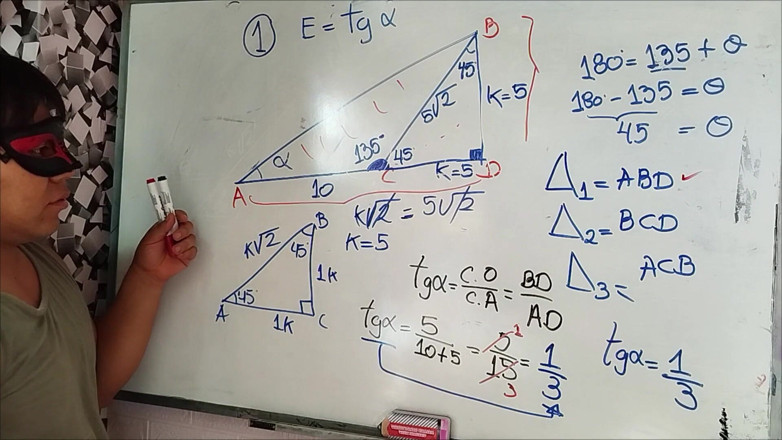 1 E = tg α
B
45
5√2
K=5
135°
α
45
K=5
D
C
A
10
K√2 = 5√2
K=5
B
K√2
45
1K
45
A
1K
C
180 = 135 + θ
180 - 135 = θ
45 = θ
Δ1 = ABD ✓
Δ2 = BCD
Δ3 = ACB
tgα = C.O/C.A = BD/AD
tgα = 5/10+5 = 5/15 = 1/3
1
3
tgα = 1/3